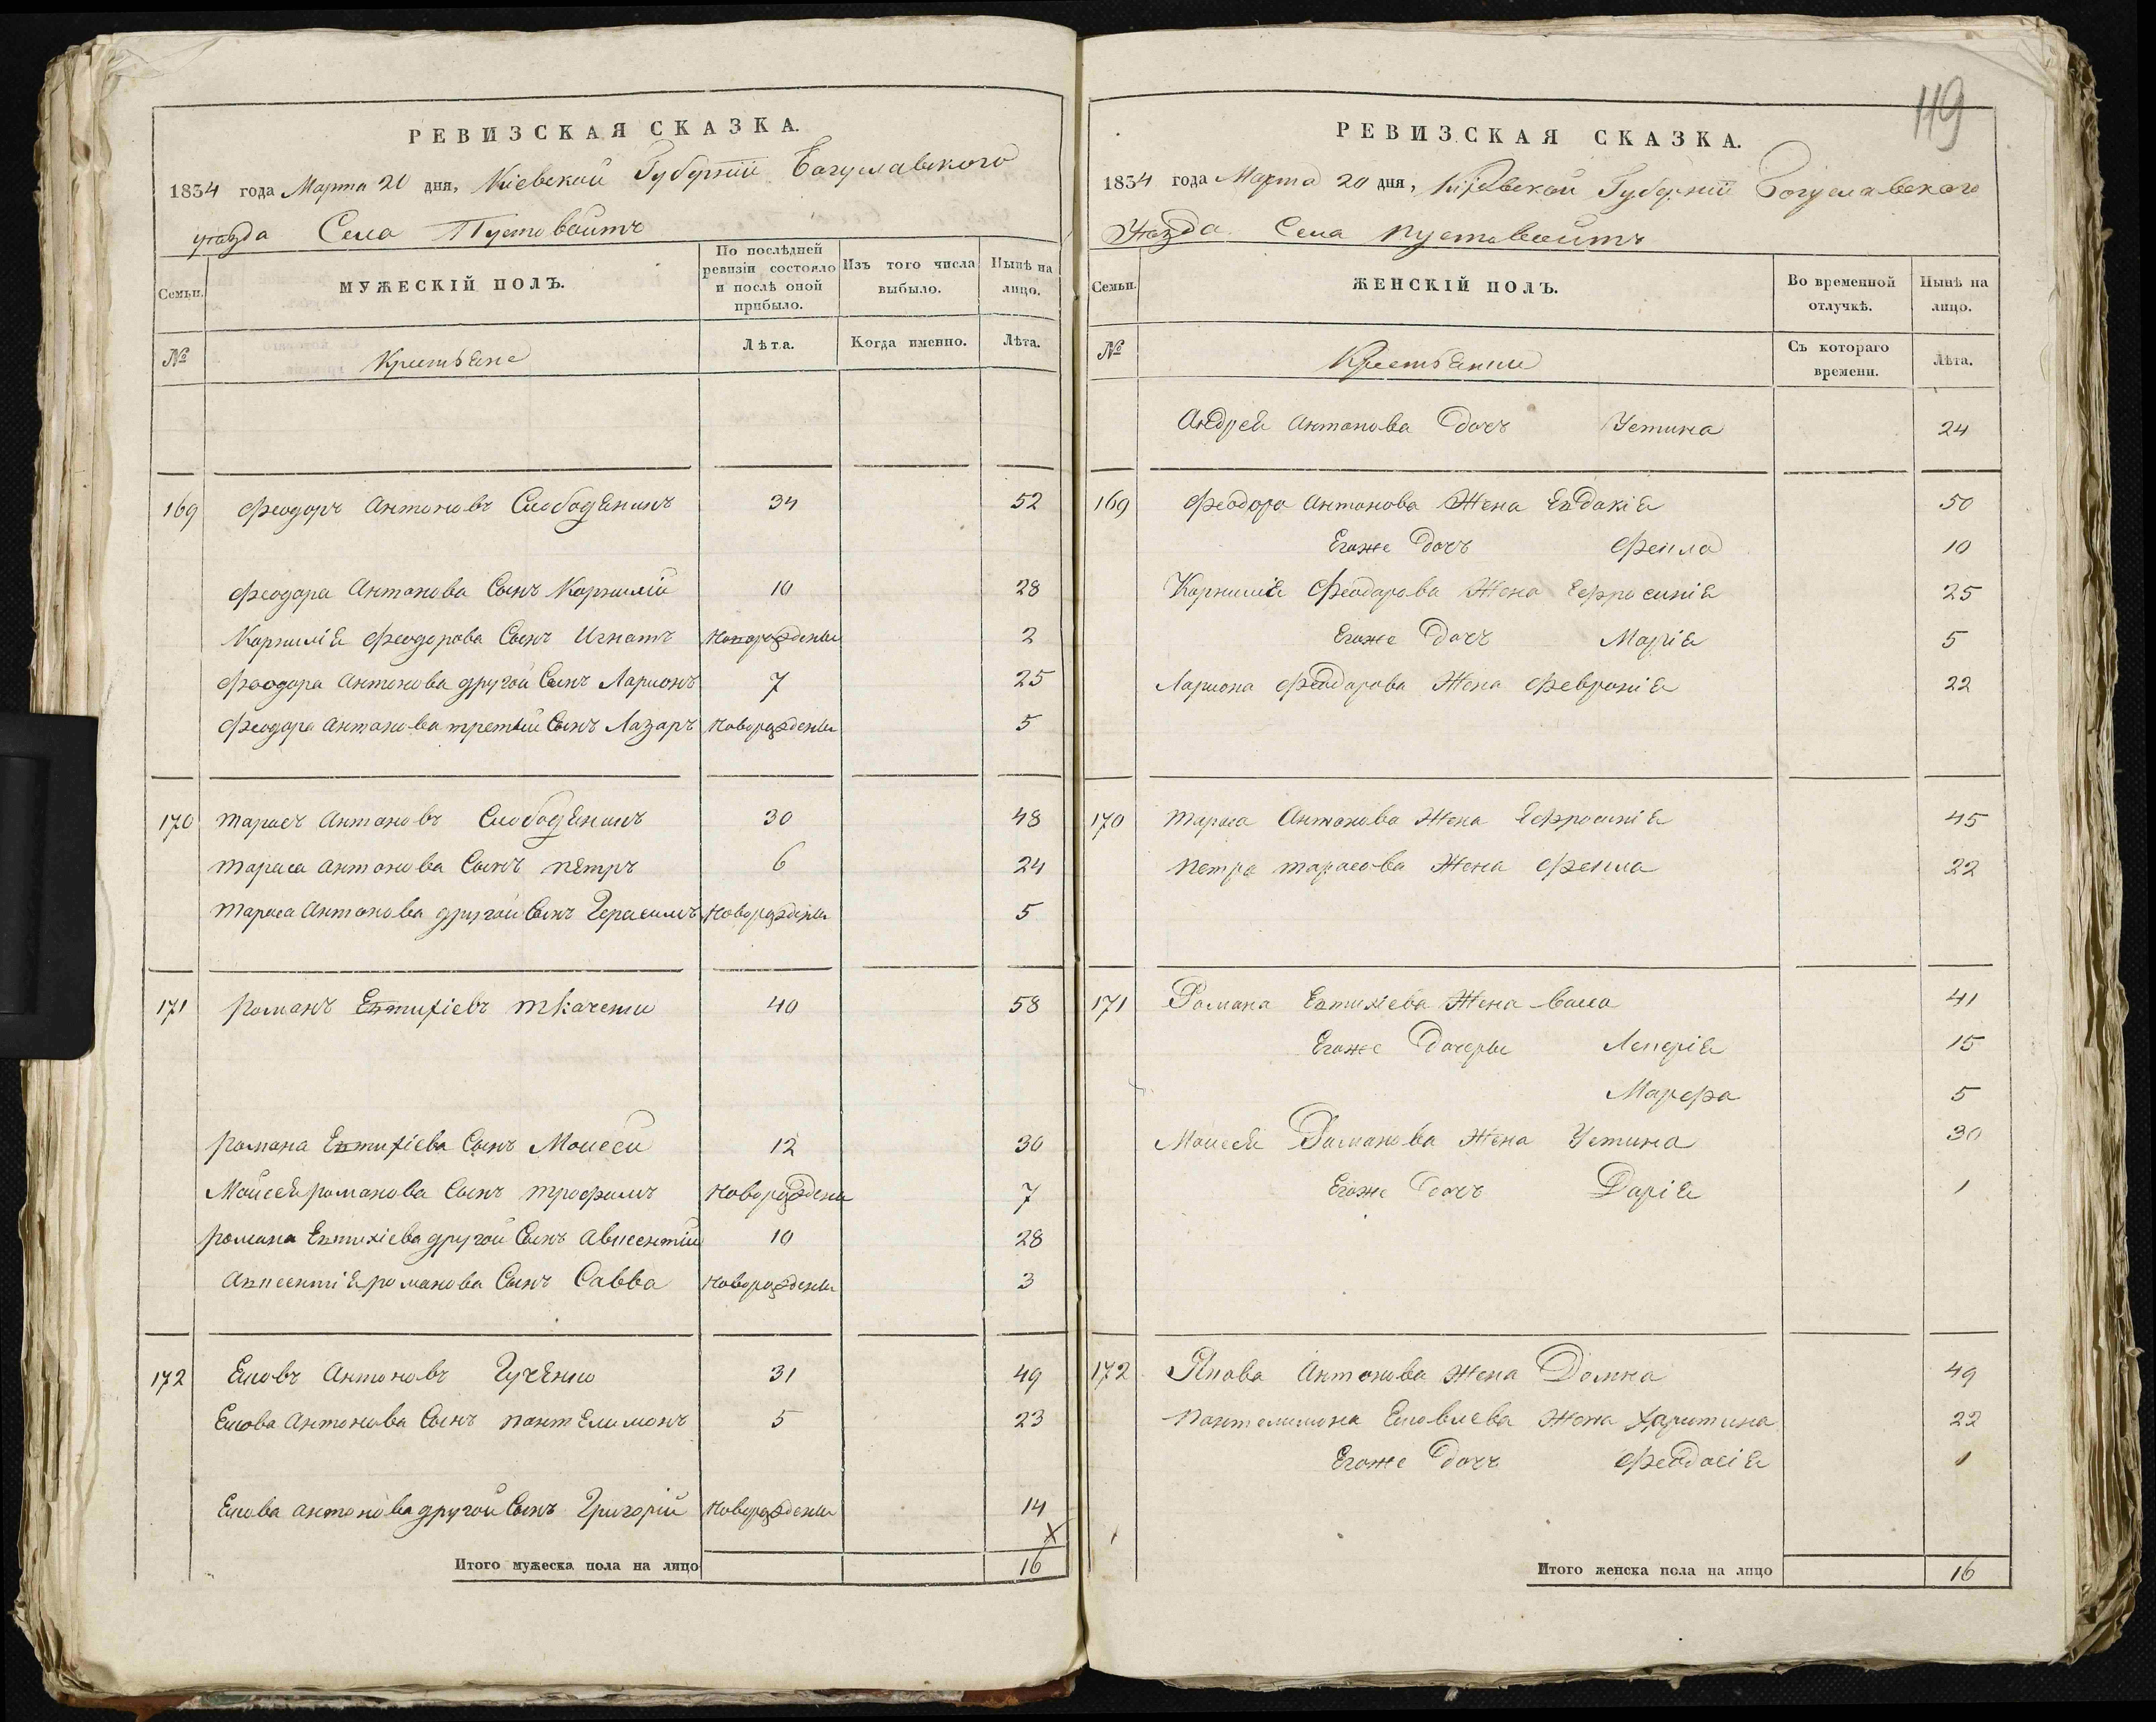 РЕВИЗСКАЯ СКАЗКА.
1834 года Марта 20 дня, Кіевской Губерніи Богуславского
уѣзда Села Пустовойтъ
Семьи.
МУЖЕСКІЙ ПОЛЪ.
По послѣдней ревизіи состояло и послѣ оной прибыло.
Изъ того числа выбыло.
Нынѣ на лицо.
№
Крестьяне
Лѣта.
Когда именно.
Лѣта.
169 Феодоръ Антоновъ Слободянинъ 34 52
Феодора Антонова Сынъ Корнилій 10 28
Корнилія Феодорова Сынъ Игнатъ Новорожденъ 2
Феодора Антонова другой Сынъ Ларионъ 7 25
Феодора Антонова третій Сынъ Лазаръ Новорожденъ 5
170 Тарасъ Антоновъ Слободянинъ 30 48
Тараса Антонова Сынъ Петръ 6 24
Тараса Антонова другой Сынъ Герасимъ Новорожденъ 5
171 Романъ Евтихіевъ Ткаченко 40 58
Романа Евтихіева Сынъ Моисей 12 30
Моисея Романова Сынъ Трофимъ Новорожденъ 7
Романа Евтихіева другой Сынъ Авксентій 10 28
Авксентія Романова Сынъ Савва Новорожденъ 3
172 Яковъ Антоновъ 31 49
Якова Антонова Сынъ Пантелимонъ 5 23
Якова Антонова другой Сынъ Григорій Новорожденъ 14
х
Итого мужеска пола на лицо 16
119
РЕВИЗСКАЯ СКАЗКА.
1834 года Марта 20 дня, Кіевской Губерніи Богуславского
Уѣзда Села Пустовойтъ
Семьи.
ЖЕНСКІЙ ПОЛЪ.
Во временной отлучкѣ.
Нынѣ на лицо.
№
Крестьянки
Съ котораго времени.
Лѣта.
Андрея Антонова дочъ Устина 24
169 Феодора Антонова Жена Евдокія 50
Егоже дочъ Фекла 10
Корнилія Феодорова Жена Ефросинія 25
Егоже дочъ Марія 5
Лариона Феодорова Жена Февронія 22
170 Тараса Антонова Жена Ефросинія 45
Петра Тарасова Жена Фекла 22
171 Романа Евтихіева Жена Васса 41
Егоже Дочеры 15
Марфа 5
Моисея Романова Жена Устина 30
Егоже дочъ Дарія 1
172 Якова Антонова Жена Домна 49
Пантелимона Яковлева Жена Харитина 22
Егоже дочъ Феодосія 1
Итого женска пола на лицо 16